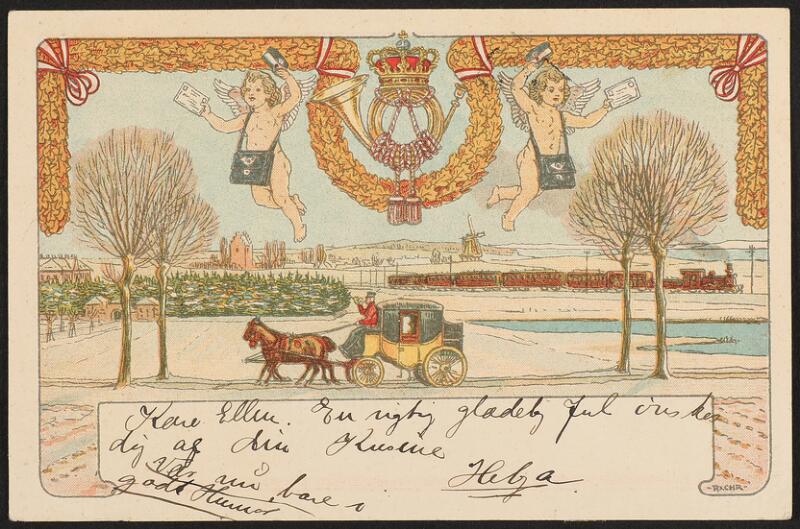 Kære Ellen. En rigtig glædelig Jul ønskes
dig af din Kusine
Helga
Vær nu bare i
godt Humør
- RXCHR -